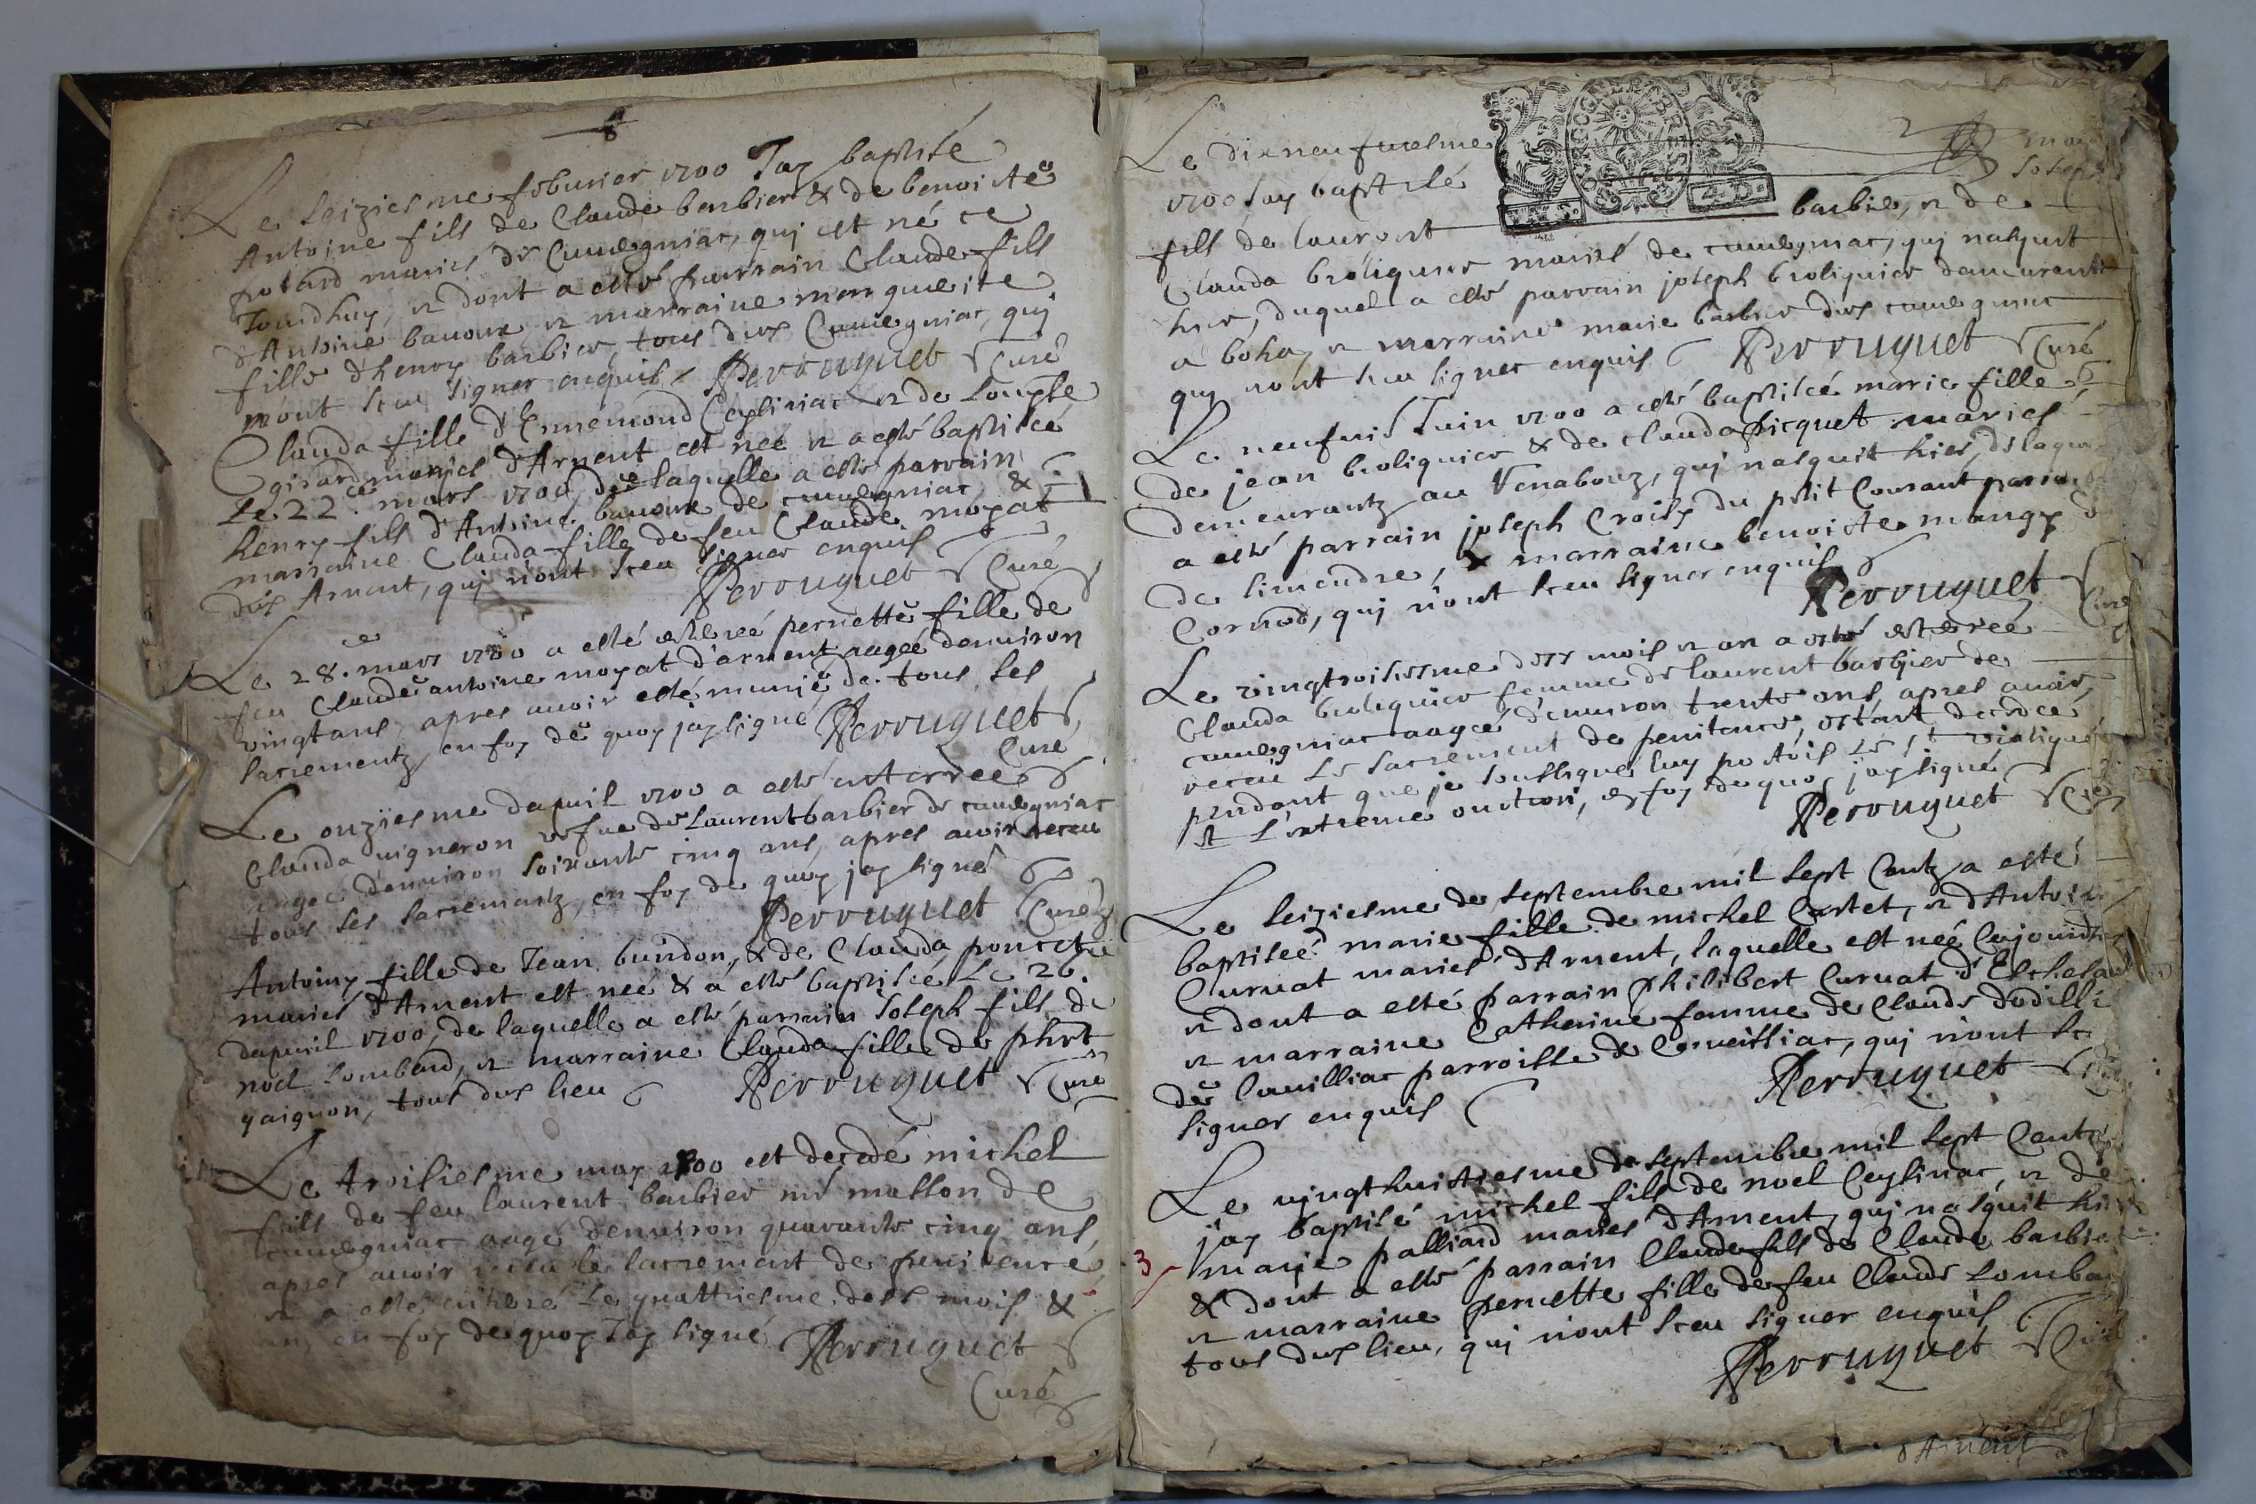 Le seiziesme febvrier 1700 Jay baptisé
Antoine fils de Claude barbier & de benoicte
potard mariés de Cuuegniac, qui est né ce
Jourdhuy, et dont a esté parrain Claude fils
d'Antoine bauoux et marraine marguerite
fille dhenry barbier, tous dud Cuuegniac, qui
n'ont sceu signer enquis Perruquet Curé
Clauda fille d'Ennemond Ceysiriac et de
girard mariés d'Arnent est neé et a esté baptiseé
Le 22e. mars 1700, de laquelle a esté parrain
henry fils d'Antoine bauoux de cuuegniac, &
marraine Clauda fille de feu Claude moyat
dud Arnent, qui n'ont sceu signer enquis
Perruquet Curé
Le 28e. mars 1700 a esté enterreé pernette fille de
feu Claude antoine moyat d'arnent aageé denuiron
vingt ans, apres auoir esté munie de tous ses
sacrementz, en foy de quoy jay signé Perruquet
Curé
Le onziesme dapuril 1700 a esté enterreé
Clauda vigneron vefue de Laurent barbier de cuuegniac
aageé denuiron soixante cinq ans, apres auoir receu
tous ses sacrementz, en foy de quoy jay signé
Perruquet Curé
Antoiny fille de Jean bundon, & de Clauda
mariés d'Arnent est neé & a esté baptiseé Le 26.
dapuril 1700, de laquelle a esté parrain Joseph fils de
noel Lombard, et marraine Clauda fille de phrt
gaignon, tous dud lieu Perruquet Curé
Le troisiesme may 1700 est decedé michel
fils de feu laurent barbier masson de
cuuegniac aagé denuiron quarante cinq ans,
apres auoir receu le sacrement de penitence
et a esté enterré Le quattriesme desd mois &
an, en foy de quoy Jay signé Perruquet
Curé
Le dixneufuiesme may
1700 Jay baptisé Joseph
fils de laurent barbier, et de
Clauda broliquier mariés de cuuegniac, qui nasquit
hier, duquel a esté parrain joseph broliquier demeurant
a bohaz et marraine marie barbier dud cuuegniac
qui nont sceu signer enquis Perruquet Curé
Le neufui Juin 1700 a esté baptiseé marie fille
de jean broliquier & de clauda picquet mariés
demeurantz au Venabouz, qui nasquit hier, de laque
a esté parrain joseph Croisy du petit Courant
de simandre, & marraine benoicte mangy de
Cornod, qui n'ont sceu signer enquis
Perruquet Curé
Le vingtroisiesme desd mois et an a esté enterreé
Clauda broliquier femme de laurent barbier de
cuuegniac aageé denuiron trente ans, apres auoir
receu Le sacrement de penitence, estant decedeé
pendant que je soussigné luy portois Le St viatique
et L'extreme onction, en foy de quoy jay signé
Perruquet Curé
Le seiziesme de septembre mil sept Centz a esté
baptiseé marie fille de michel Cartet, et d'Antoi
Curuat mariés d'Arnent, laquelle est neé Cejourdh
et dont a esté parrain philibert Curuat
et marraine Catherine femme de Claude dodill
de Couilliac parroisse de Corueissiac, qui n'ont sc
signer enquis Perruquet
Le vingthuictiesme de septembre mil sept Centz
jay baptisé michel fils de noel Ceysiriac, et de
marie palliard mariés d'Arnent, qui nasquit hier
3
& dont a esté parrain Claude fils de Claude barbier
et marraine pernette fille de feu Claude Lomba
tous dud lieu, qui n'ont sceu signer enquis
Perruquet Curé
d'Arnent